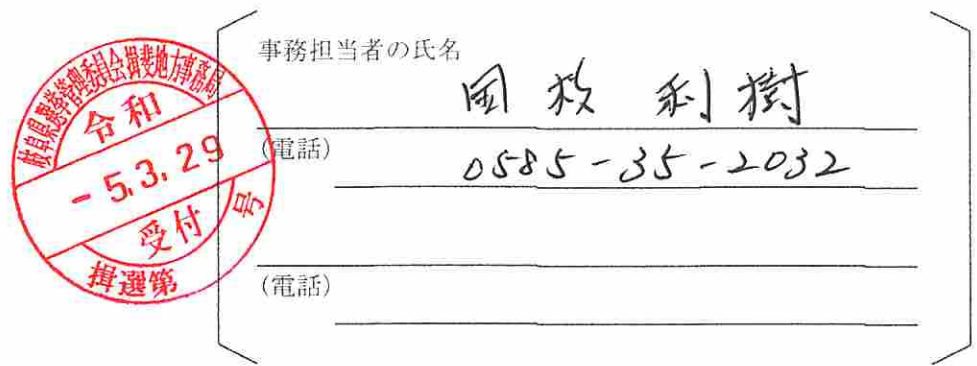 岐阜県選挙管理委員会揖斐地方事務局
令和
-5.3.29
受付
揖選第 号
事務担当者の氏名
国枚 利樹
(電話)
0585-35-2032
(電話)